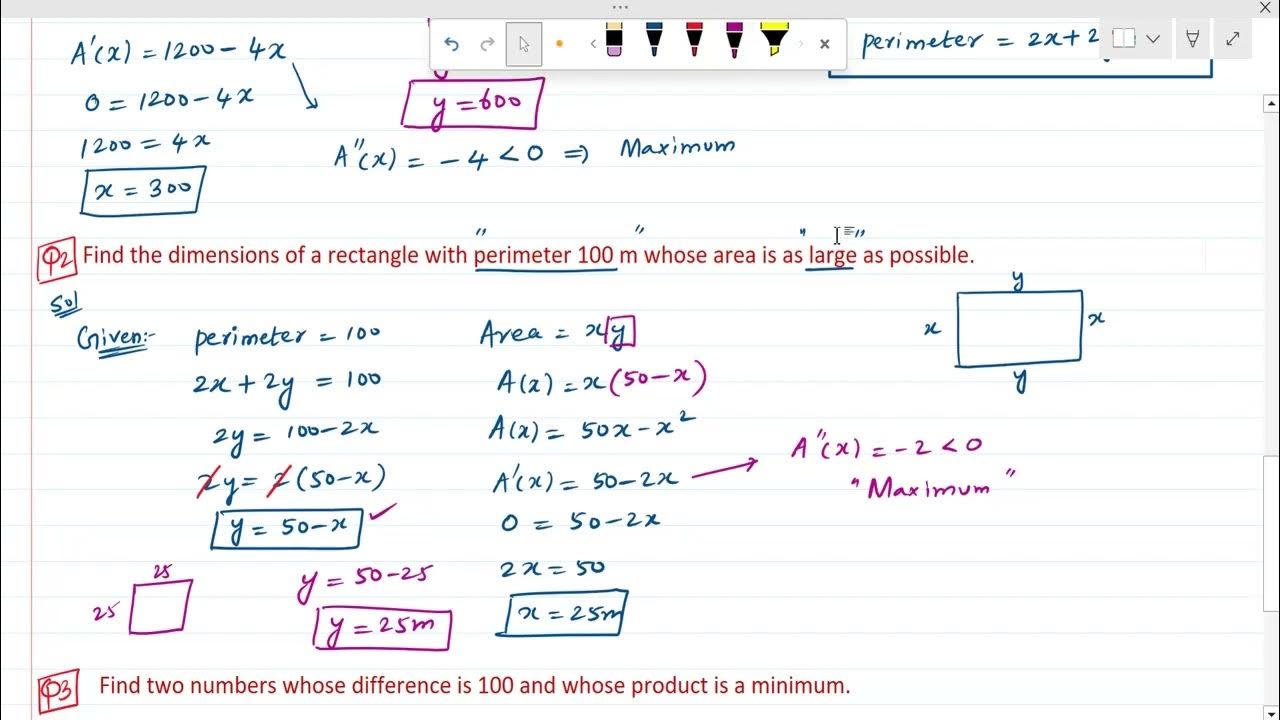 A'(x) = 1200 - 4x
0 = 1200 - 4x
1200 = 4x
x = 300
y = 600
A''(x) = -4 < 0 ⇒ Maximum
perimeter = 2x + 2
Q2 Find the dimensions of a rectangle with perimeter 100 m whose area is as large as possible.
Sol
Given:- perimeter = 100
2x + 2y = 100
2y = 100 - 2x
2y = 2(50 - x)
y = 50 - x
y = 50 - 25
y = 25m
25
25
Area = xy
A(x) = x(50 - x)
A(x) = 50x - x²
A'(x) = 50 - 2x
0 = 50 - 2x
2x = 50
x = 25m
A''(x) = -2 < 0
"Maximum"
y
x
x
y
Q3 Find two numbers whose difference is 100 and whose product is a minimum.